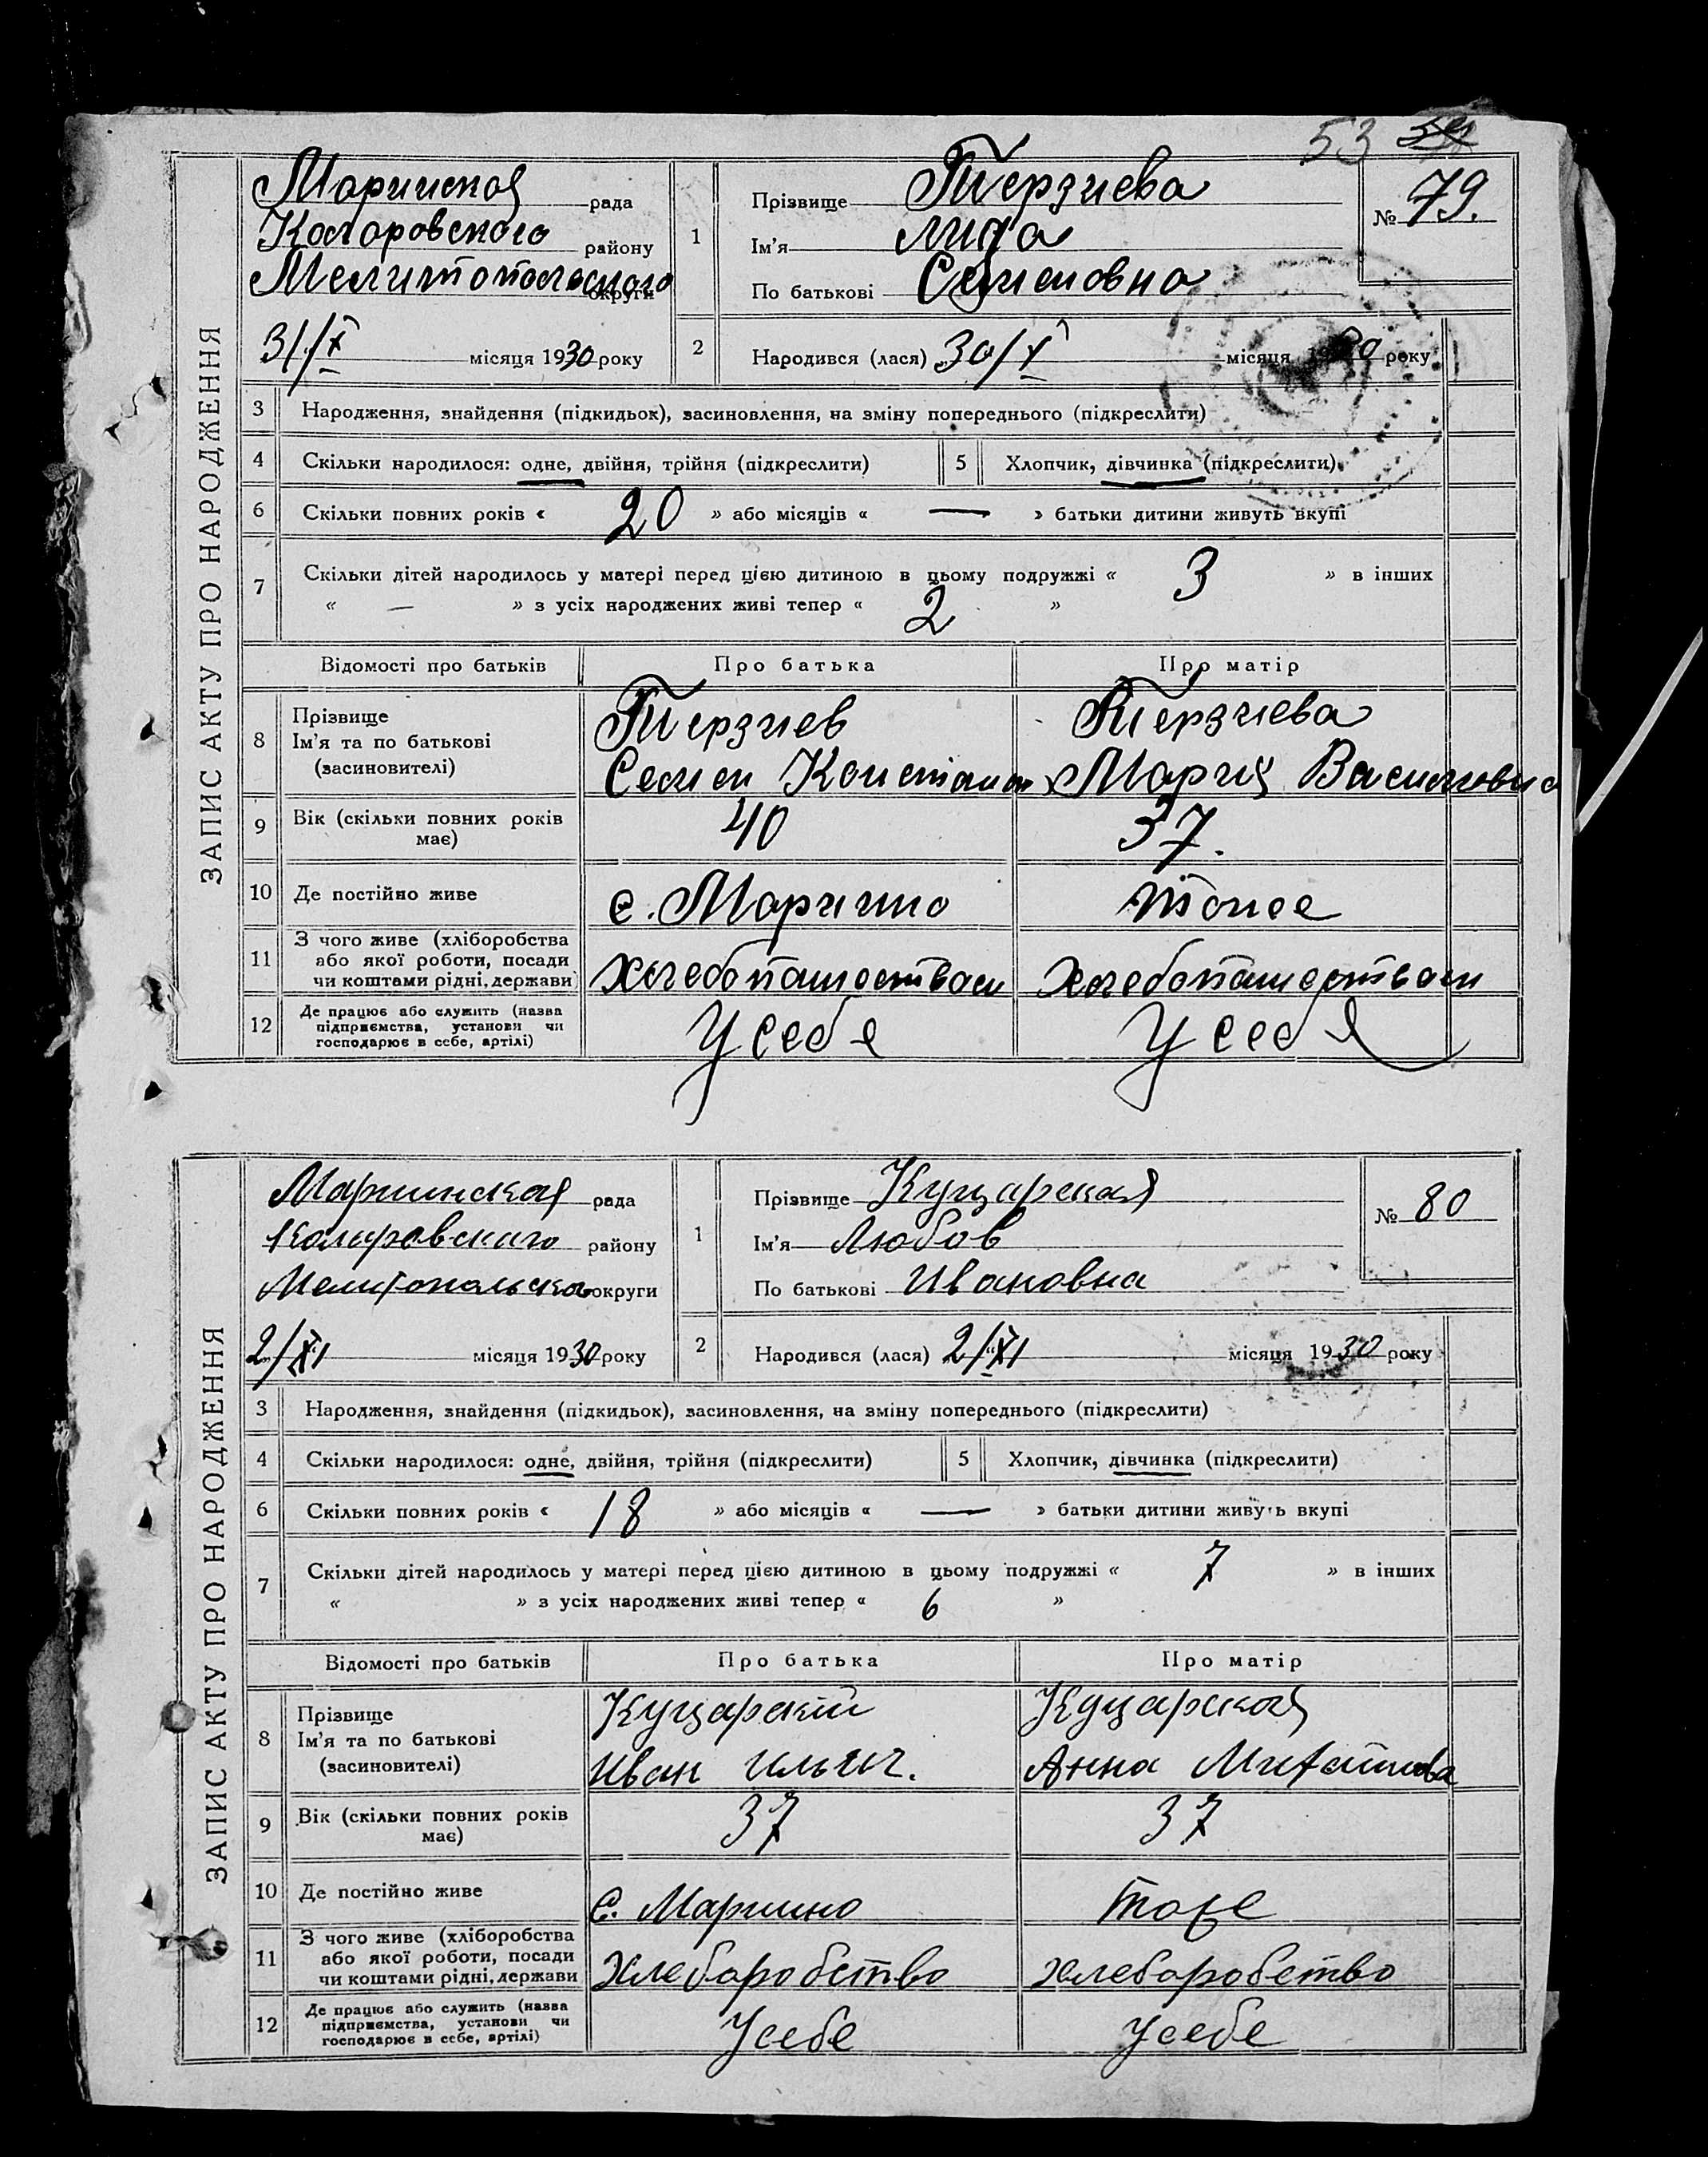 53 54
ЗАПИС АКТУ ПРО НАРОДЖЕННЯ
Маринская рада
Коларовского району
Мелитопольского округи
31/X місяця 1930 року
1
Прізвище Терзиева
Ім'я Лида
По батькові Семеновна
№ 79.
2 Народився (лася) 30/X місяця 1930 року
3 Народження, знайдення (підкидьок), засиновлення, на зміну попереднього (підкреслити)
4 Скільки народилося: одне, двійня, трійня (підкреслити) 5 Хлопчик, дівчинка (підкреслити)
6 Скільки повних років « 20 » або місяців « — » батьки дитини живуть вкупі
7 Скільки дітей народилось у матері перед цією дитиною в цьому подружжі « 3 » в інших
« — » з усіх народжених живі тепер « 2 »
Відомості про батьків Про батька Про матір
8 Прізвище Ім'я та по батькові (засновителі)
Терзиев Терзиева
Семен Констан Мария Васильовна
9 Вік (скільки повних років має) 40 37.
10 Де постійно живе с. Марино тоже
11 З чого живе (хліборобства або якої роботи, посади чи коштами рідні, держави) Хлебопашеством Хлебопашеством
12 Де працює або служить (назва підприємства, установи чи господарює в себе, артілі) У себе У себя
ЗАПИС АКТУ ПРО НАРОДЖЕННЯ
Мариинская рада
Коларовского району
Мелитопольского округи
2/XI місяця 1930 року
1
Прізвище Куцарская
Ім'я Любов
По батькові Ивановна
№ 80
2 Народився (лася) 2/XI місяця 1930 року
3 Народження, знайдення (підкидьок), засиновлення, на зміну попереднього (підкреслити)
4 Скільки народилося: одне, двійня, трійня (підкреслити) 5 Хлопчик, дівчинка (підкреслити)
6 Скільки повних років « 18 » або місяців « — » батьки дитини живуть вкупі
7 Скільки дітей народилось у матері перед цією дитиною в цьому подружжі « 7 » в інших
« » з усіх народжених живі тепер « 6 »
Відомості про батьків Про батька Про матір
8 Прізвище Ім'я та по батькові (засиновителі)
Куцарский Куцарская
Иван Ильич. Анна
9 Вік (скільки повних років має) 37 37
10 Де постійно живе С. Марино тоже
11 З чого живе (хліборобства або якої роботи, посади чи коштами рідні, держави Хлеборобство хлеборобство
12 Де працює або служить (назва підприємства, установи чи господарює в себе, артілі) Усебе Усебе